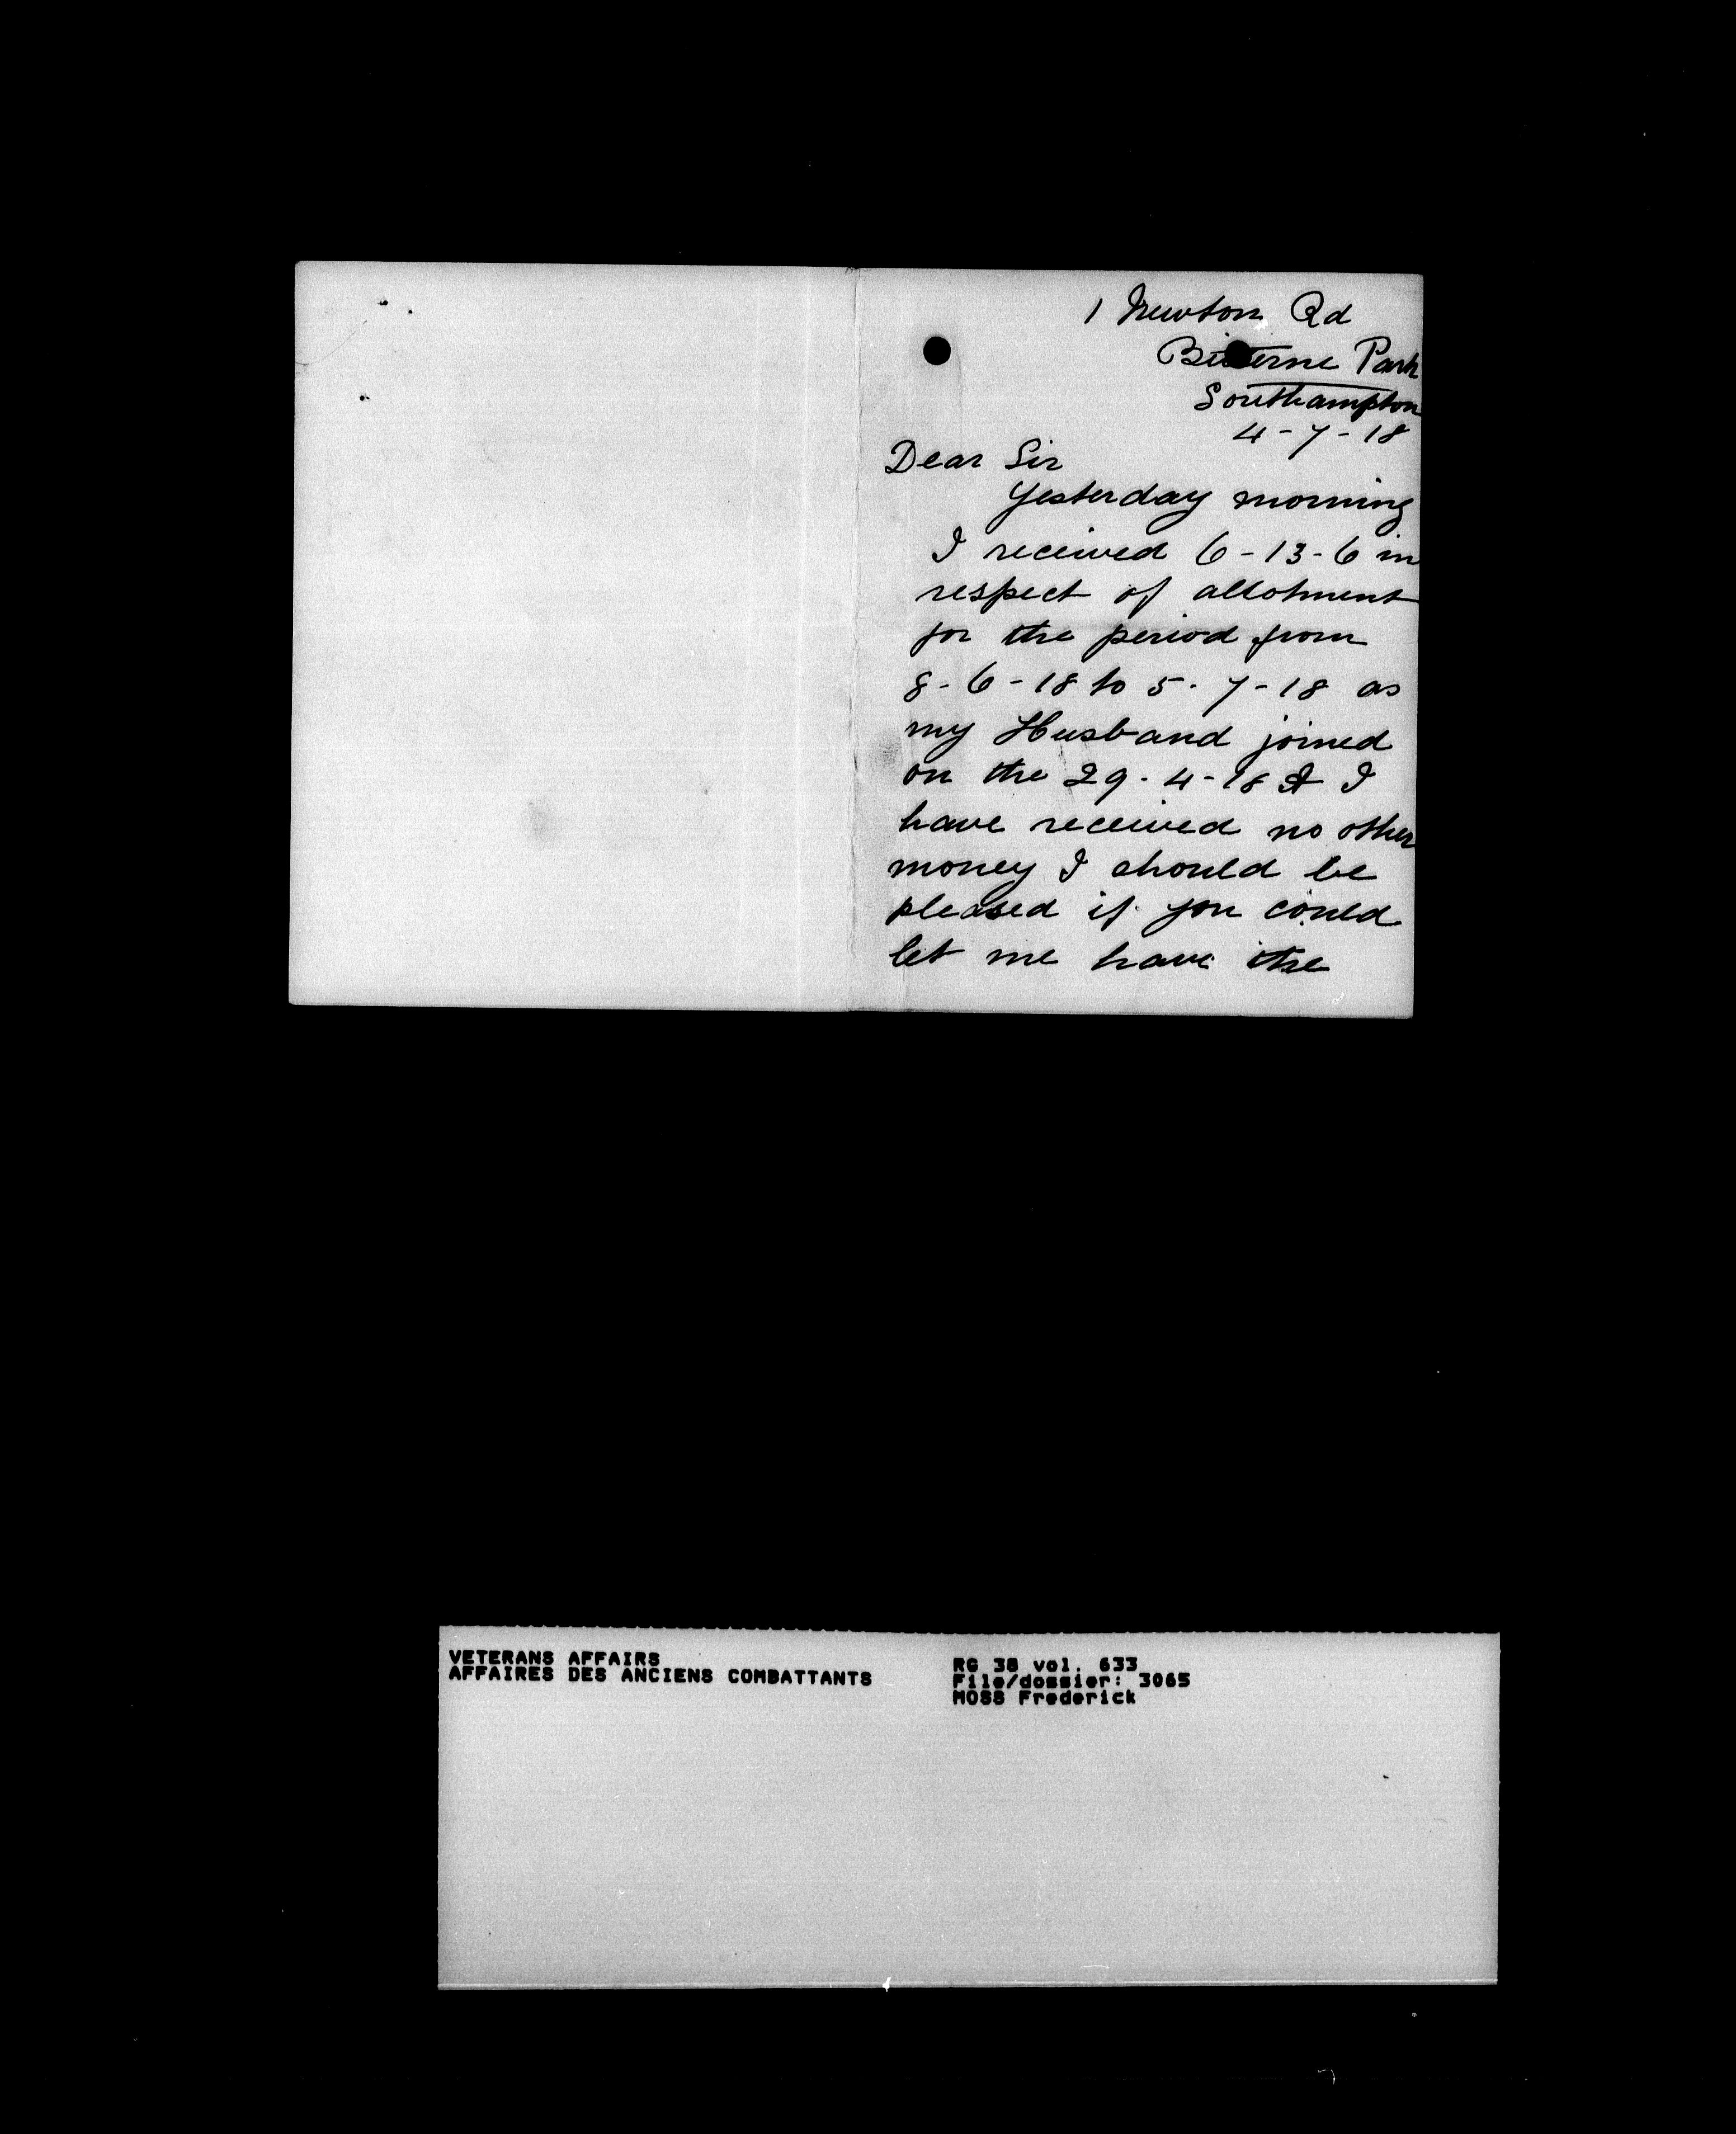 1 Newton Rd
Bitterne Park
Southampton
4-7-18
Dear Sir
Yesterday morning
I received 6-13-6 in
respect of allotment
for the period from
8-6-18 to 5.7-18 as
my Husband joined
on the 29.4-18 & I
have received no other
money I should be
pleased if you could
let me have the
VETERANS AFFAIRS
AFFAIRES DES ANCIENS COMBATTANTS
RG 38 vol. 633
File/dossier: 3065
MOSS Frederick